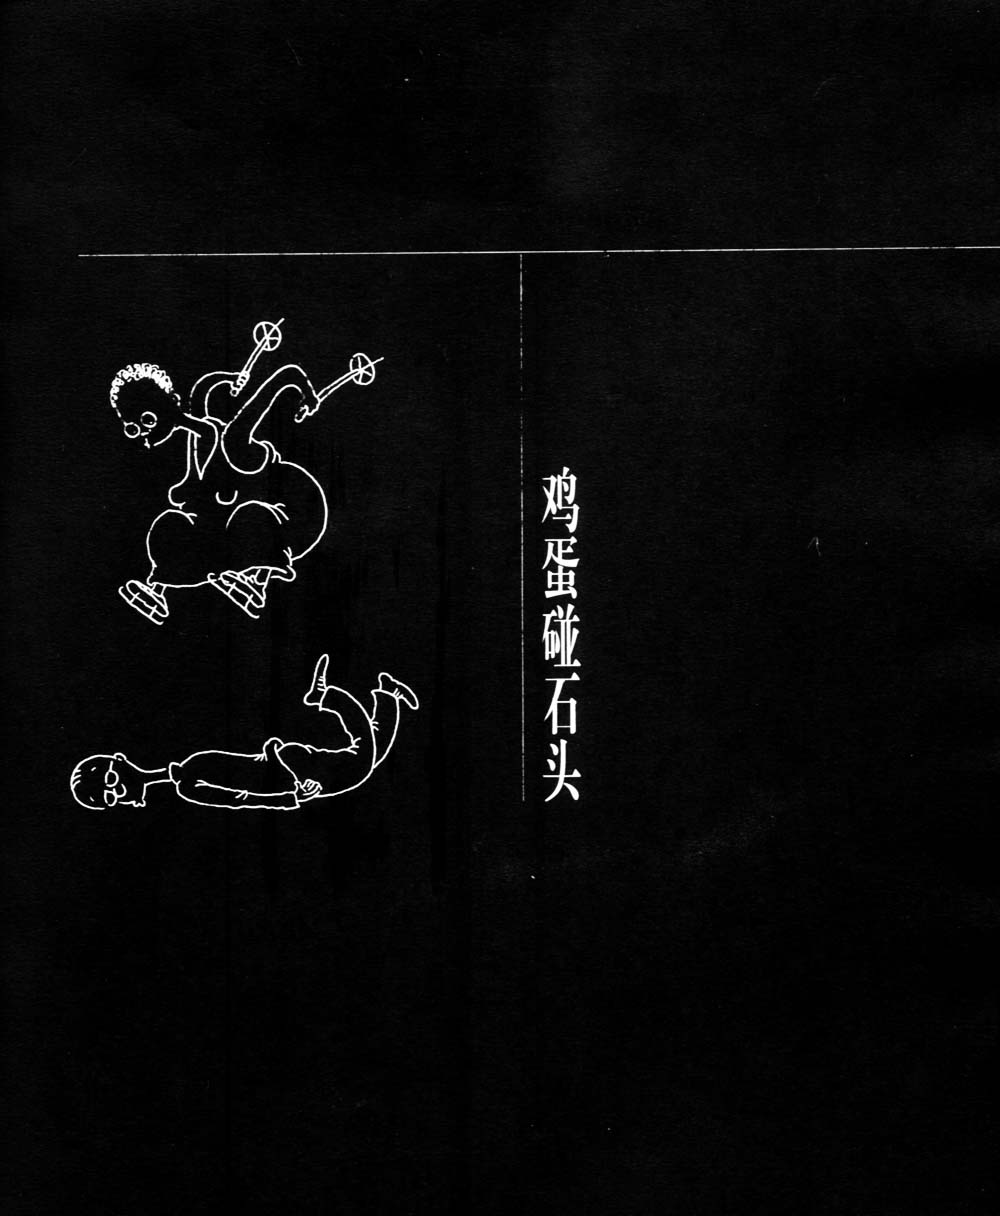 鸡蛋碰石头